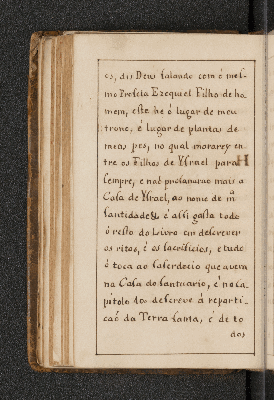 es, dis Deus falando com ó mes-
mo Profeta Ezequiel Filho de ho
mem, este he ó lugar de meu
trono, é lugar de plantas de
meos pes, no qual morarey en-
tre os Filhos de Ysrael para
sempre, e naõ profanaraõ mais a
Casa de Ysrael, ao nome de
santidade & é assi gasta todo
ó resto do Livro em descrever
os ritos, é os sacrificios, e tudo
ó toca ao saserdocio que avera
na Casa do santuario, é no ca-
pitolo descreve á reparti-
caõ da Terra santa, é de to
dos